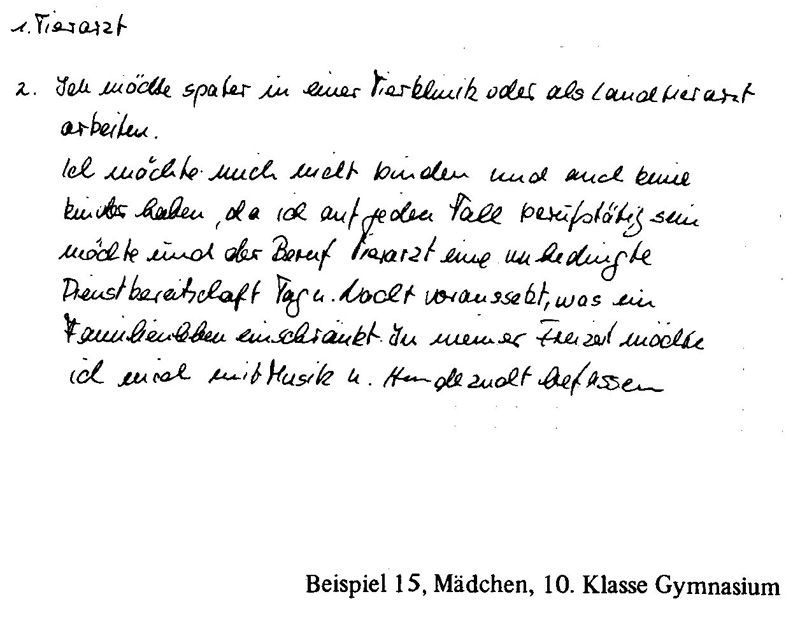 1. Tierarzt
2. Ich möchte später in einer Tierklinik oder als Landtierarzt
arbeiten.
Ich möchte mich nicht binden und auch keine
Kinder haben, da ich auf jeden Fall berufstätig sein
möchte und der Beruf Tierarzt eine unbedingte
Dienstbereitschaft Tag u. Nacht voraussetzt, was ein
Familienleben einschränkt. In meiner Freizeit möchte
ich mich mit Musik u. Hundezucht befassen
Beispiel 15, Mädchen, 10. Klasse Gymnasium